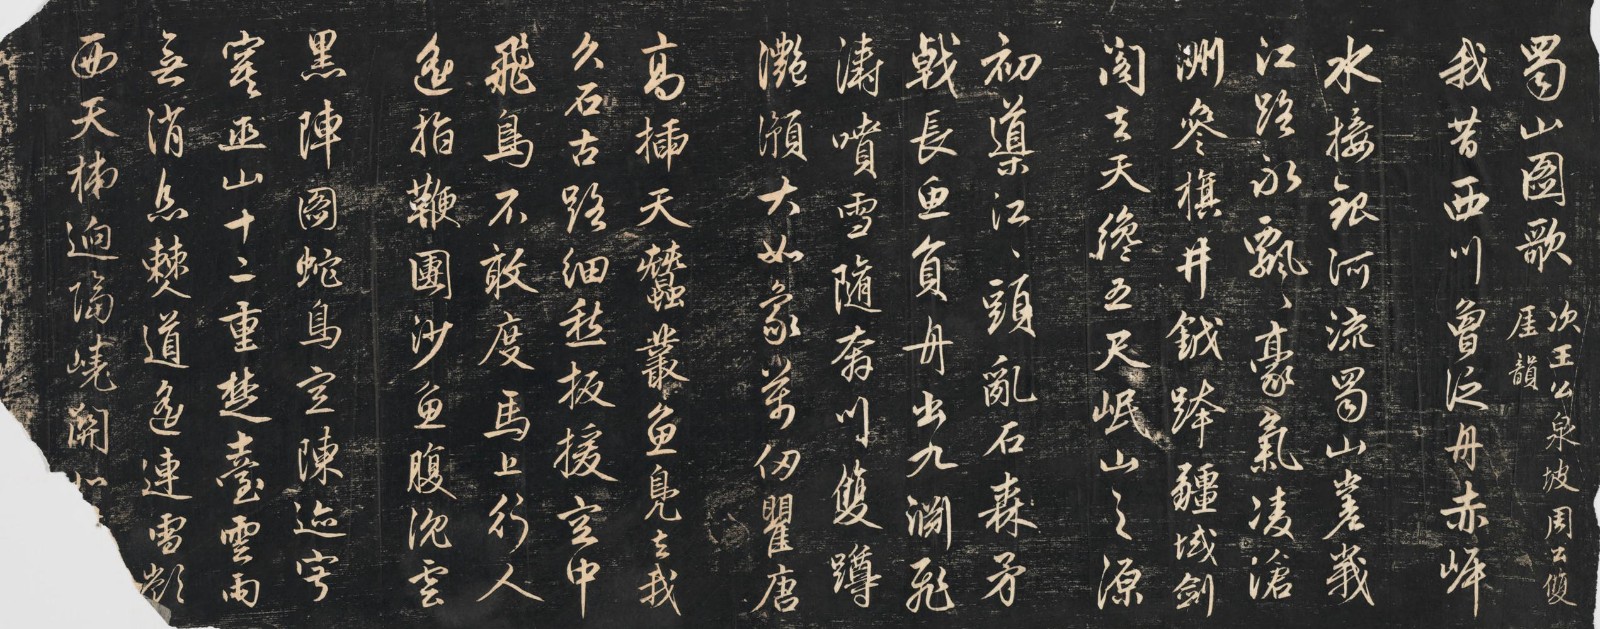 蜀山圖歌
次王公泉坡周公雙
厓韻
我昔西川曾泛舟赤岸
水接銀河流蜀山崔嶻
江路永飄〻豪氣凌滄
洲參旗井鉞跨疆域劍
閣去天纔五尺岷山之源
初導江江〻頭亂石森矛
戟長魚負舟出九淵飛
濤噴雪隨奔川雙蹲
灩澦大如象萬仞瞿唐
高插天蠶叢魚鳧去我
久石古路細愁扳援空中
飛鳥不敢度馬上行人
遙指鞭團沙魚腹沈雲
黑陣圖蛇鳥空陳迹寄
寞巫山十二重楚臺雲雨
無消息僰道遙連雪嶺
西天梯迥隔嶢關